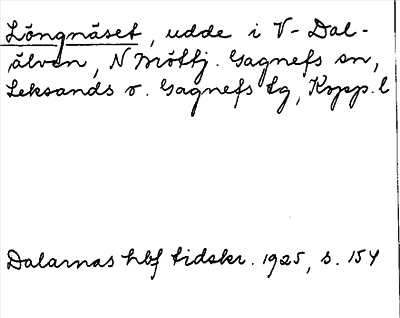 Löngnäset, udde i V-Dal-
älven, N Möttj. Gagnefs sn,
Leksands o. Gagnefs tg, Kopp. l
Dalarnas hbf tidskr. 1925, s. 154